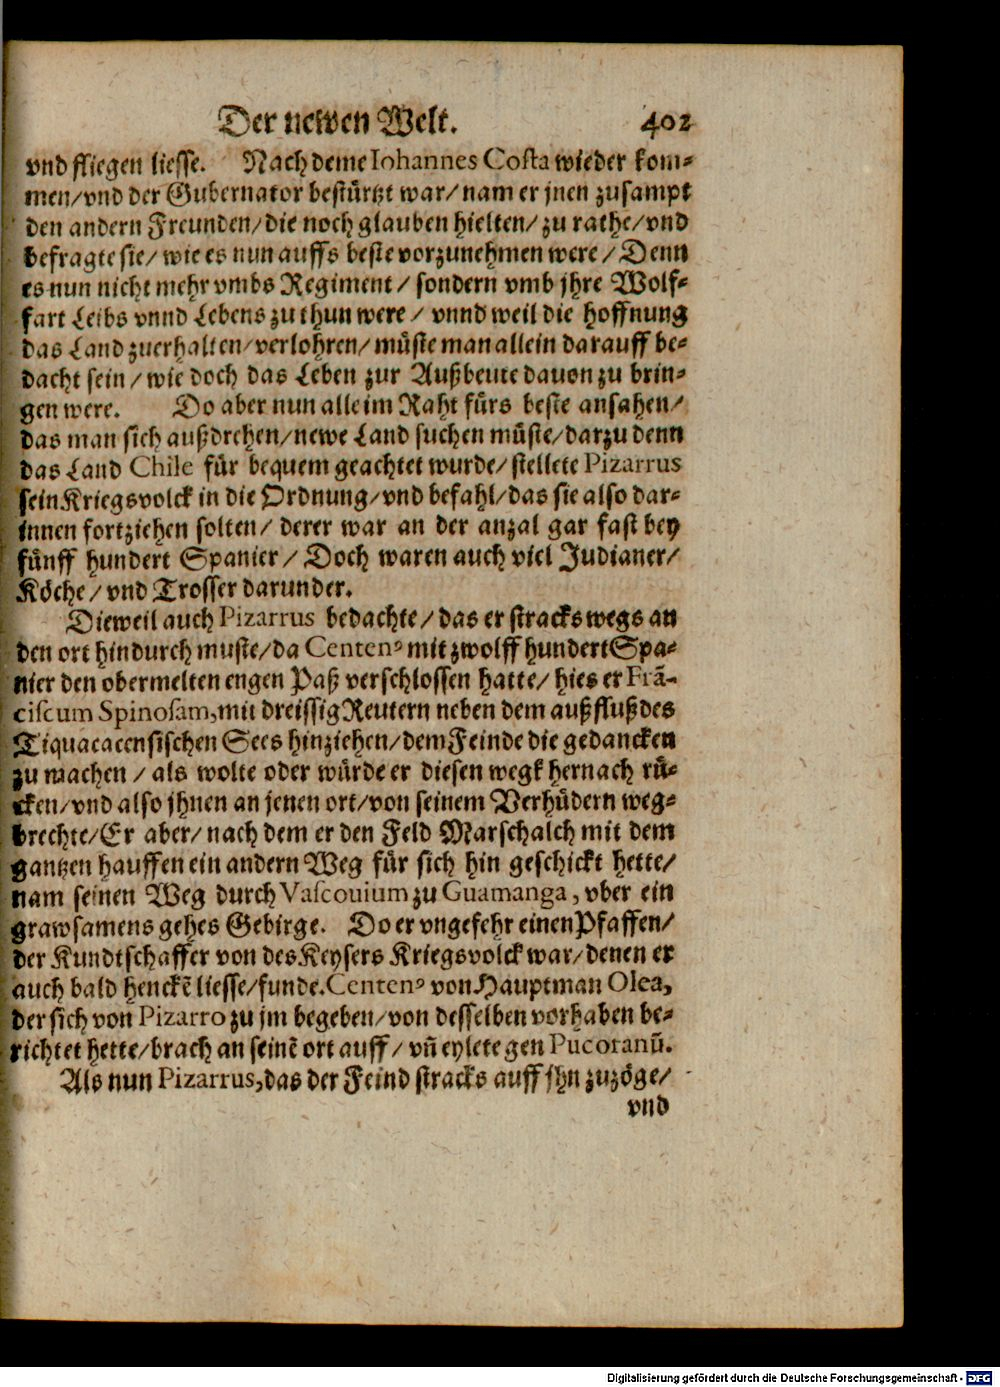 Der newen Welt. 402
vnd fliegen liesse. Nach deme Iohannes Costa wieder kom-
men/vnd der Gubernator bestürtzt war/nam er jnen zusampt
den andern Freunden/die noch glauben hielten/zu rathe/vnd
befragte sie/wie es nun auffs beste vorzunehmen were/Denn
es nun nicht mehr vmbs Regiment/sondern vmb jhre Wolf-
fart Leibs vnnd Lebens zu thun were/vnnd weil die hoffnung
das Land zuerhalten/verlohren/müste man allein darauff be-
dacht sein/wie doch das Leben zur Außbeute dauon zu brin-
gen were. Do aber nun alle im Raht fürs beste ansahen/
das man sich außdrehen/newe Land suchen müste/darzu denn
das Land Chile für bequem geachtet wurde/stellete Pizarrus
sein Kriegsvolck in die Ordnung/vnd befahl/das sie also dar-
innen fortziehen solten/derer war an der anzal gar fast bey
fünff hundert Spanier/Doch waren auch viel Judianer/
Köche/vnd Trosser darunder.
Dieweil auch Pizarrus bedachte/das er stracks wegs an
den ort hindurch muste/da Centenꝰ mit zwolff hundert Spa-
nier den obermelten engen Paß verschlossen hatte/hies er Frā-
ciscum Spinosam, mit dreissig Reutern neben dem außfluß des
Tiquacacensischen Sees hinziehen/dem Feinde die gedancken
zu machen/als wolte oder würde er diesen wegk hernach rü-
cken/vnd also jhnen an jenen ort/von seinem Verhüdern weg-
brechte/Er aber/nach dem er den Feld Marschalch mit dem
gantzen hauffen ein andern Weg für sich hin geschickt hette/
nam seinen Weg durch Vascouium zu Guamanga, vber ein
grawsamens gehes Gebirge. Do er vngefehr einen Pfaffen/
der Kundtschaffer von des Keysers Kriegsvolck war/denen er
auch bald henckē liesse/funde. Centenꝰ von Hauptman Olea,
der sich von Pizarro zu jm begeben/von desselben vorhaben be-
richtet hette/brach an seinē ort auff/vñ eylete gen Pucoranū.
Als nun Pizarrus, das der Feind stracks auff jhn zuzöge/
vnd
Digitalisierung gefördert durch die Deutsche Forschungsgemeinschaft - DFG